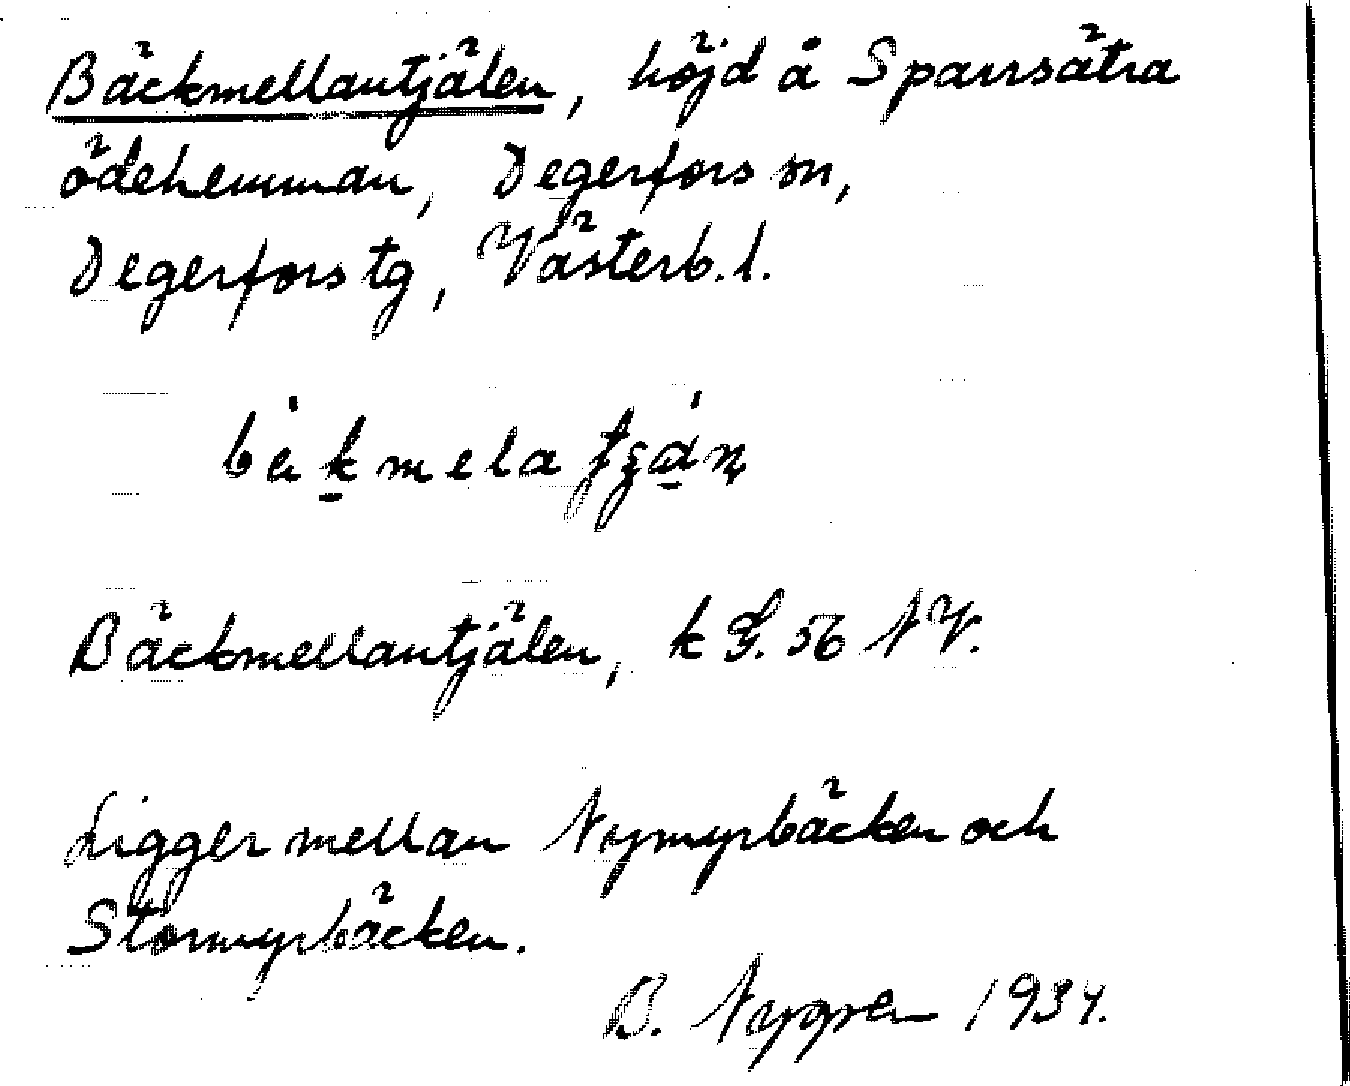 Bäckmellantjälen, höjd å Sparrsätra
ödehemman, Degerfors sn,
Degerfors tg, Västerb. l.
Bäckmellantjälen, k G. 56 NV.
Ligger mellan Nymyrbäcken och
Stormyrbäcken.
B. Nygren 1934.